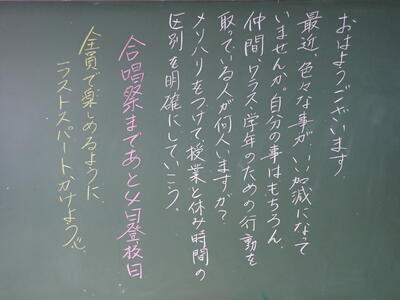 おはようございます。
最近、色々な事が、いい加減になって
いませんか。自分の事はもちろん、
仲間、クラス、学年のための行動を
取っている人が何人いますか?
メリハリをつけて、授業と休み時間の
区別を明確にしていこう。
合唱祭まであと4日登校日
全員で楽しめるように、
ラストスパートかけよう